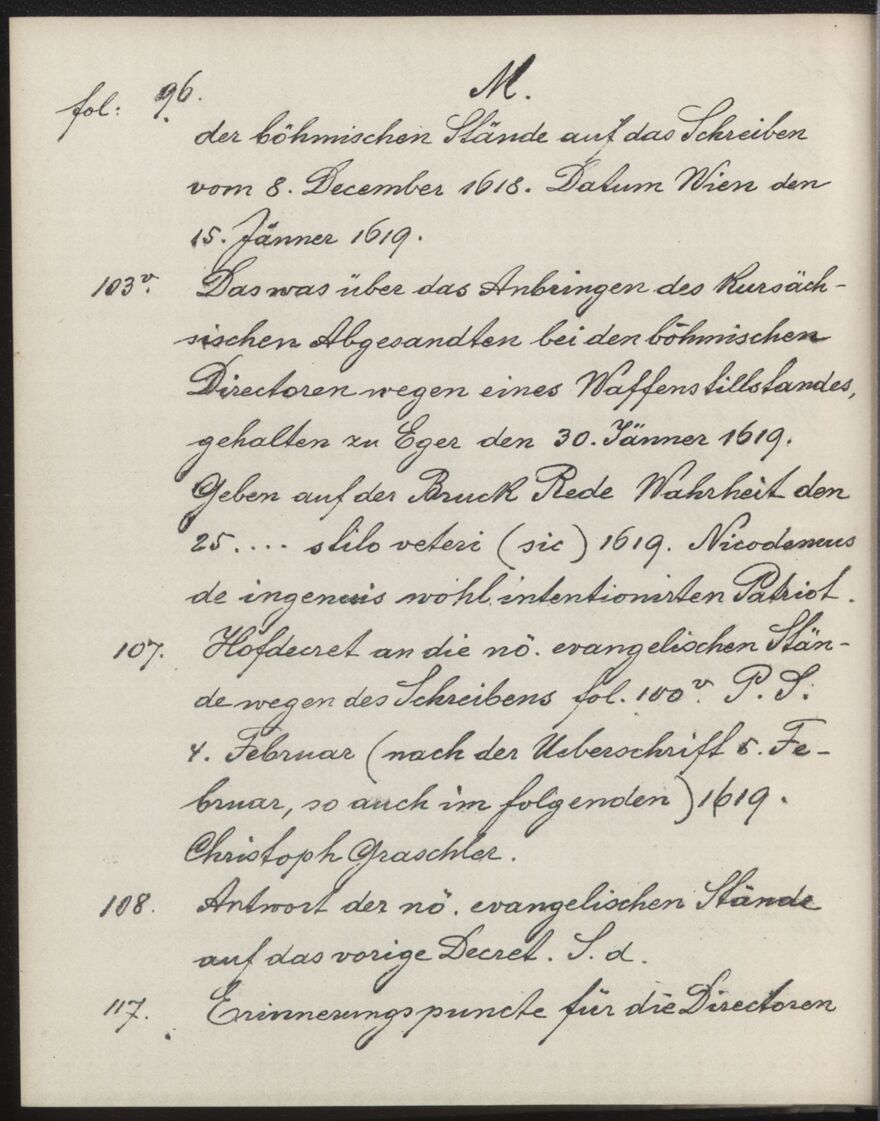 fol: 96. M.
der böhmischen Stände auf das Schreiben
vom 8. December 1618. Datum Wien den
15. Jänner 1619.
103v. Das was über das Anbringen des kursäch-
sischen Abgesandten bei den böhmischen
Directoren wegen eines Waffenstillstandes,
gehalten zu Eger den 30. Jänner 1619.
Geben auf der Bruck Rede Wahrheit den
25. ... stilo veteri (sic) 1619. Nicodemus
de ingenuis wohl intentionirten Patriot.
107. Hofdecret an die nö. evangelischen Stän-
de wegen des Schreibens fol. 100v. P. S.
4. Februar (nach der Ueberschrift 5. Fe-
bruar, so auch im folgenden) 1619.
Christoph Graschler.
108. Antwort der nö. evangelischen Stände
auf das vorige Decret. S. d.
117. Erinnerungspuncte für die Directoren